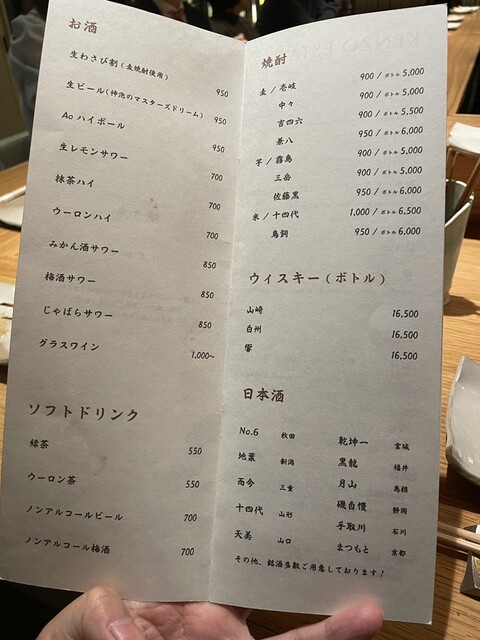 お酒
生わさび割(麦焼酎使用) 950
生ビール(神泡のマスターズドリーム) 950
Ao ハイボール 950
生レモンサワー 700
抹茶ハイ 700
ウーロンハイ 700
みかん酒サワー 850
梅酒サワー 850
じゃばらサワー 850
グラスワイン 1,000~
ソフトドリンク
緑茶 550
ウーロン茶 550
ノンアルコールビール 700
ノンアルコール梅酒 700
焼酎
麦 / 壱岐 900 / ボトル 5,000
中々 900 / ボトル 5,000
吉四六 900 / ボトル 5,500
兼八 950 / ボトル 6,000
芋 / 霧島 900 / ボトル 5,000
三岳 900 / ボトル 5,000
佐藤黒 950 / ボトル 6,000
米 / 十四代 1,000 / ボトル 6,500
鳥飼 950 / ボトル 6,000
ウィスキー(ボトル)
山崎 16,500
白州 16,500
響 16,500
日本酒
No.6 秋田
地葉 新潟
而今 三重
十四代 山形
天美 山口
乾坤一 宮城
黒龍 福井
月山 島根
磯自慢 静岡
手取川 石川
まつもと 京都
その他、銘酒多数ご用意しております!